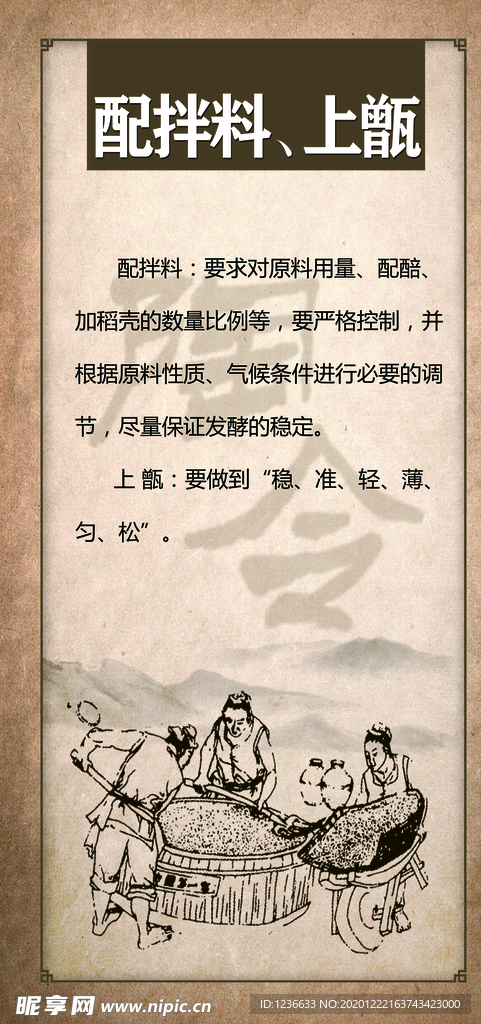 配拌料、上甑
配拌料：要求对原料用量、配醅、
加稻壳的数量比例等，要严格控制，并
根据原料性质、气候条件进行必要的调
节，尽量保证发酵的稳定。
上 甑：要做到“稳、准、轻、薄、
匀、松”。
昵享网 www.nipic.cn
ID:1236633 NO:20201222163743423000